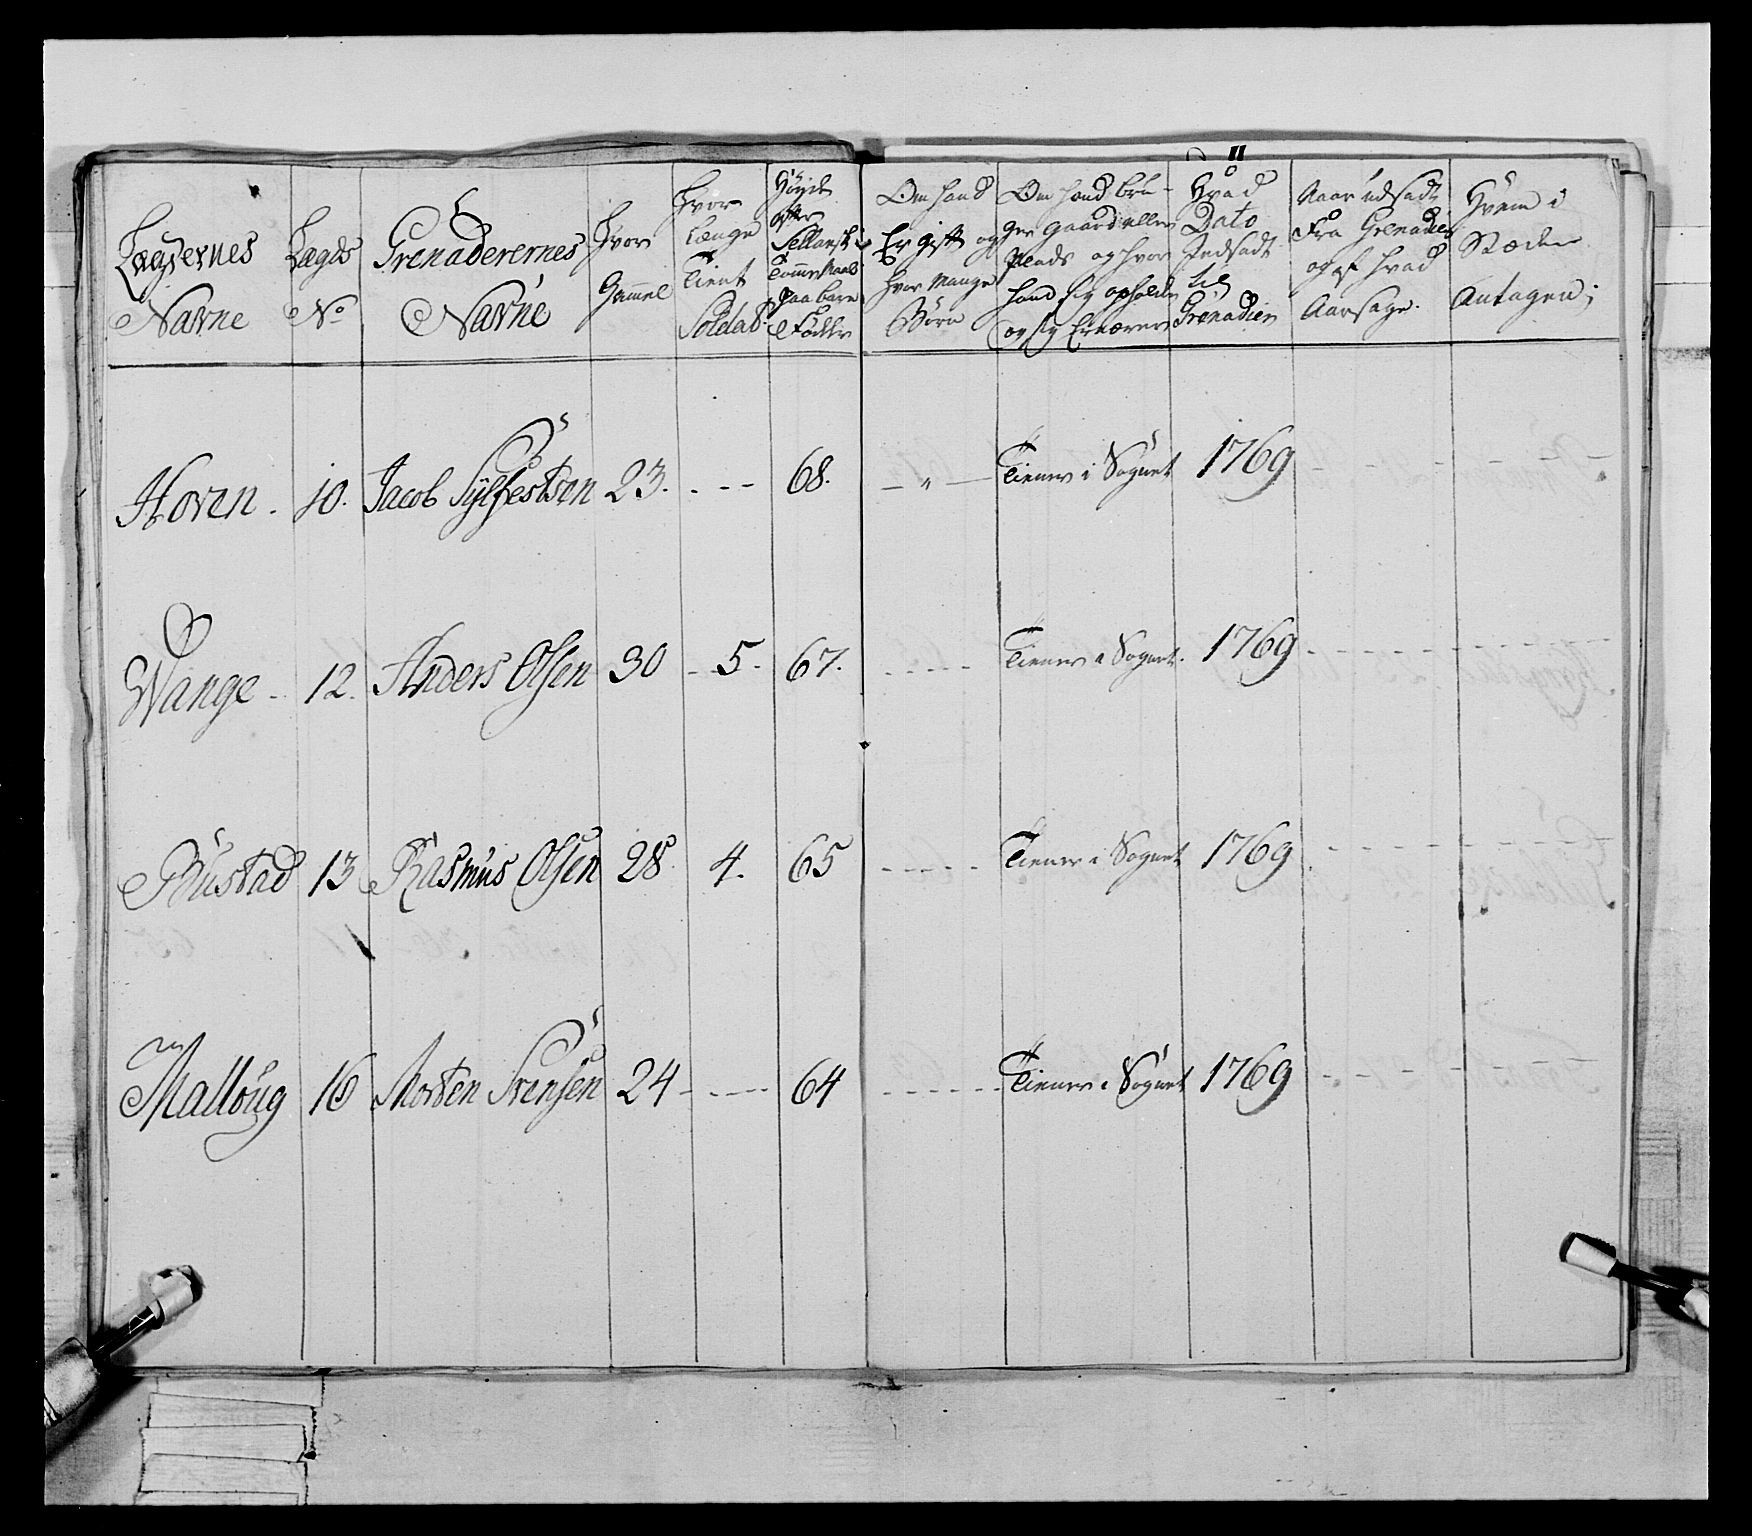 11
Lægdernes Navne
Lægds No
Grenaderernes Navne
Hvor Gammel
Hvor Længe Tient Soldat
Høyde efter Sellandsk Tommemaal paa bare Fødder
Om hand Er gift og hvor mange Børn
Om hand bruger gaard eller Plads og hvor hand sig opholder og sig Ernærer
Hvad Dato Indsadt til Grenadier
Naar udsadt Fra Grenadier og af hvad Aarsage.
Hvem i Stæden Antagen;
Hoven. 10. Jacob Sylfestsen 23. - - - 68. - " - Tiener i Sognet 1769 - - - -
Wange - 12. Anders Olsen 30 - 5. 67. - - - - Tiener i Sognet. 1769 - - - -
Rustad 13 Rasmus Olsen 28. 4. 65 - - - - Tiener i Sognet 1769 - - - -
Malloug 16 Morten Svensen 24 - - - - 64 - - - - Tiener i Sognet 1769 - - - -